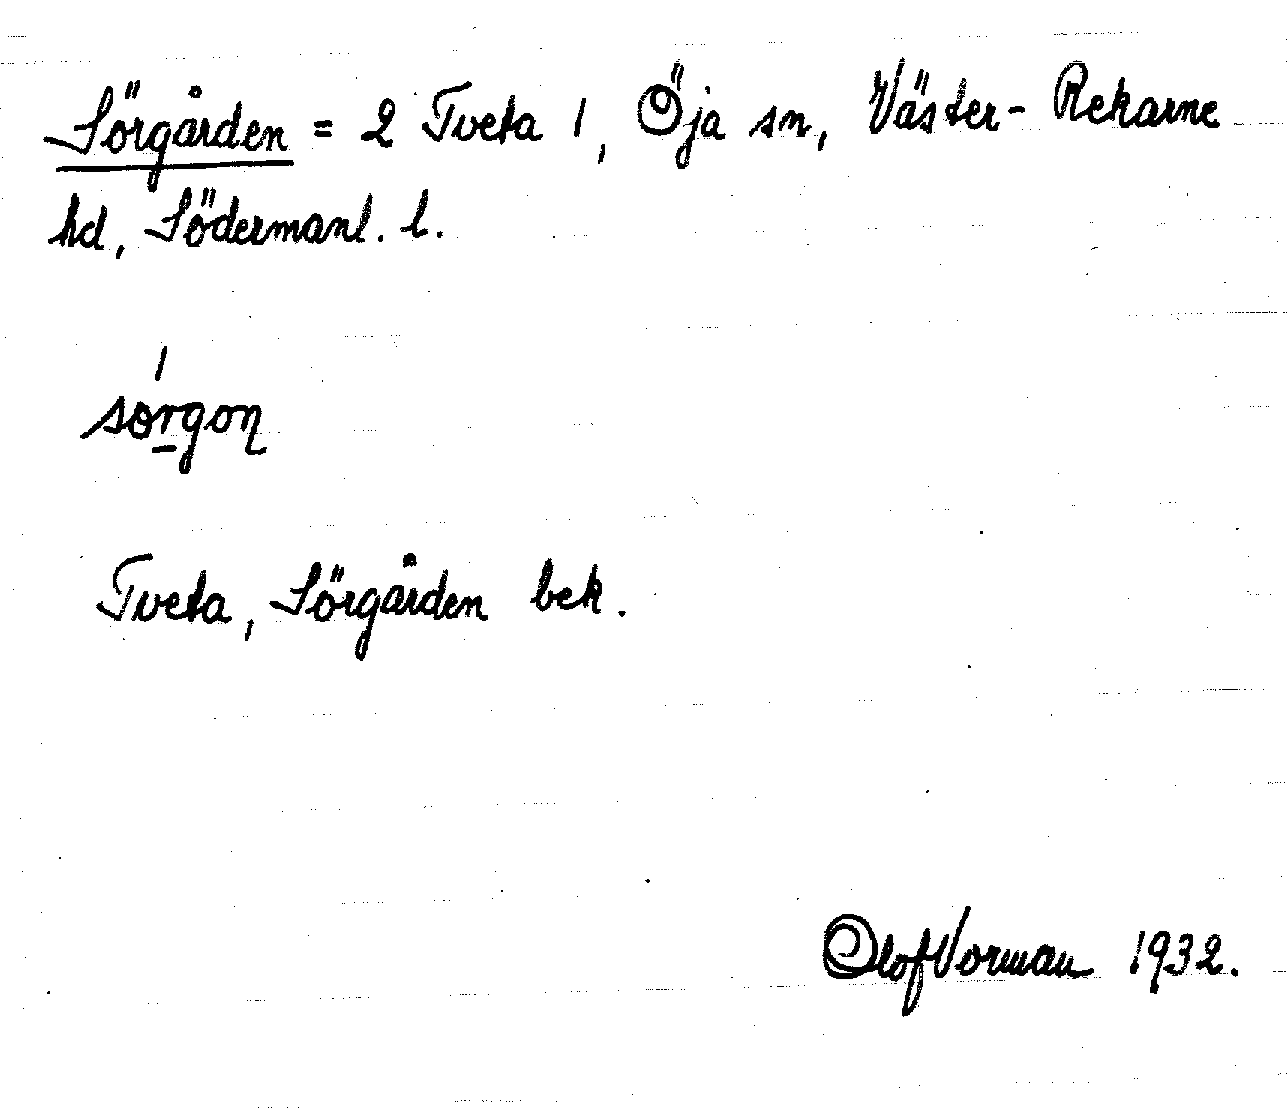 Sörgården = 2 Tveta 1, Öja sn, Väster-Rekarne
hd, Södermanl. l.
Tveta, Sörgården bek.
Olof Vorman 1932.